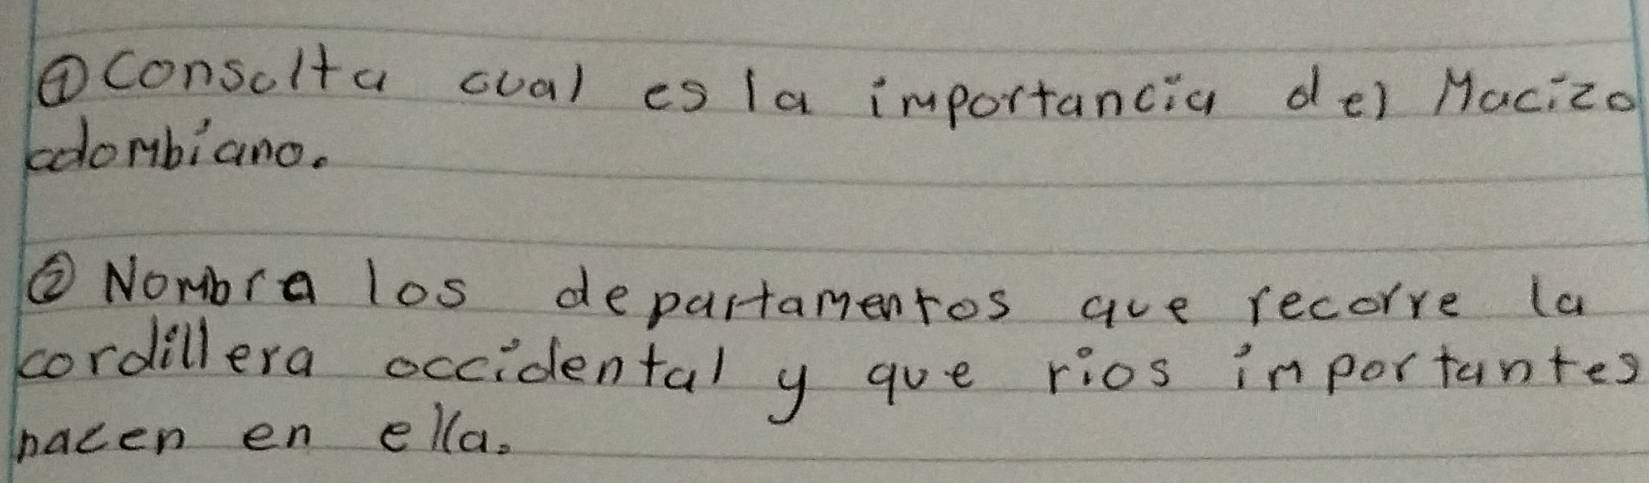 ① Consulta cual es la importancia del Macizo
colombiano.
② Nombra los departamentos que recorre la
cordillera occidental y que rios importantes
nacen en ella.